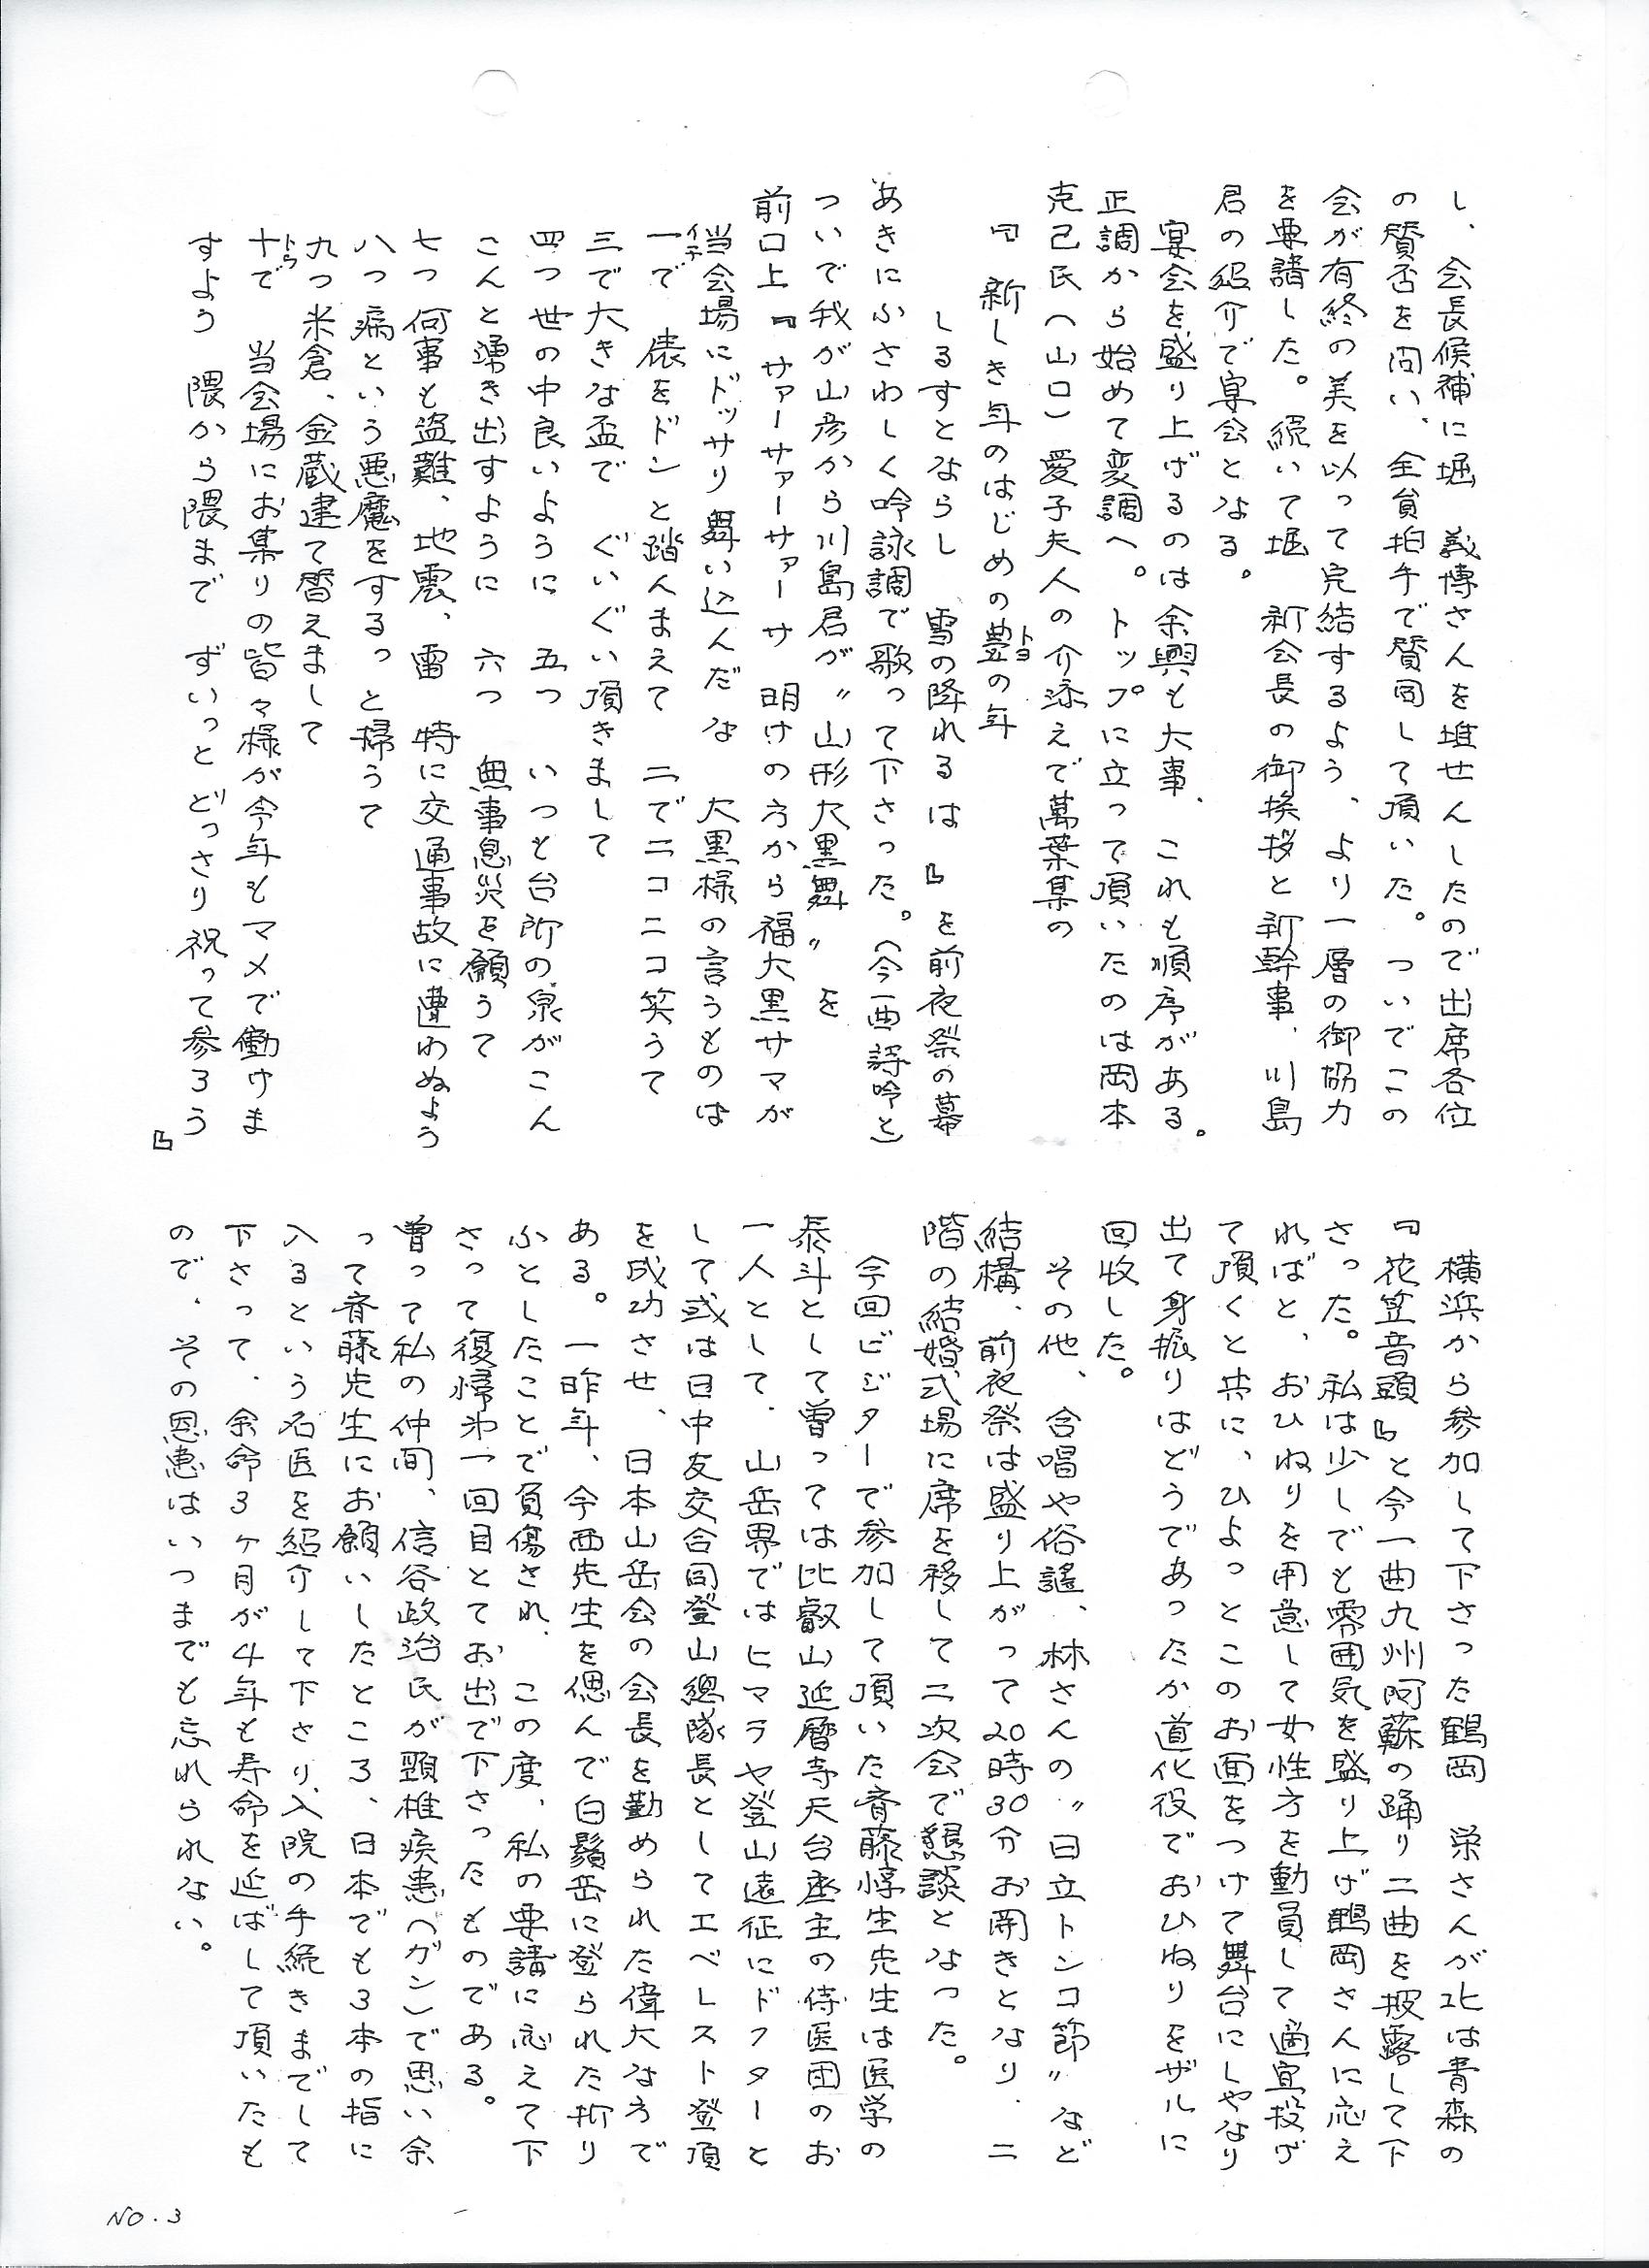 し、会長候補に堀　義博さんを推せんしたので出席各位
の賛否を問い、全員拍手で賛同して頂いた。ついでこの
会が有終の美を以って完結するよう、より一層の御協力
を要請した。続いて堀　新会長の御挨拶と新幹事、川島
君の紹介で宴会となる。
宴会を盛り上げるのは余興も大事、これも順序がある。
正調から始めて変調へ。トップに立って頂いたのは岡本
克己氏（山口）愛子夫人の介添えで萬葉集の
『　新しき年のはじめの豊の年
トヨ
しるすとならし　雪の降れるは　』を前夜祭の幕
あきにふさわしく吟詠調で歌って下さった。（今西詩吟と）
ついで我が山彦から川島君が〝山形大黒舞〟を
前口上『サァーサァーサァーサ　明けの方から福大黒サマが
当会場にドッサリ舞い込んだな　大黒様の言うものは
イチ
一で　俵をドンと踏んまえて　二でニコニコ笑うて
三で大きな盃で　ぐいぐい頂きまして
四つ世の中良いように　五つ　いつも台所の泉がこん
こんと湧き出すように　六つ　無事息災を願うて
七つ何事も盗難、地震、雷　特に交通事故に遭わぬよう
八つ病という悪魔をするっと掃うて
九つ米倉、金蔵建て替えまして
トウ
十で　当会場にお集りの皆々様が今年もマメで働けま
すよう　隈から隈まで　ずいっとどっさり祝って参ろう
』
横浜から参加して下さった鶴岡　栄さんが北は青森の
『花笠音頭』と今一曲九州阿蘇の踊り二曲を披露して下
さった。私は少しでも雰囲気を盛り上げ鶴岡さんに応え
ればと、おひねりを用意して女性方を動員して適宜投げ
て頂くと共に、ひよっとこのお面をつけて舞台にしゃなり
出て身振りはどうであったか道化役でおひねりをザルに
回収した。
その他、合唱や俗謡、林さんの〝日立トンコ節〟など
結構、前夜祭は盛り上がって20時30分お開きとなり、二
階の結婚式場に席を移して二次会で懇談となつた。
今回ビジターで参加して頂いた斉藤惇生先生は医学の
泰斗として曽っては比叡山延暦寺天台座主の侍医団のお
一人として、山岳界ではヒマラヤ登山遠征にドクターと
して或は日中友交合同登山總隊長としてエベレスト登頂
を成功させ、日本山岳会の会長を勤められた偉大な方で
ある。一昨年、今西先生を偲んで白鬚岳に登られた折り
ふとしたことで負傷され、この度、私の要請に応えて下
さって復帰第一回目とてお出で下さったものである。
曽って私の仲間、信谷政治氏が頸椎疾患（ガン）で思い余
って斉藤先生にお願いしたところ、日本でも3本の指に
入るという名医を紹介して下さり、入院の手続きまでして
下さって、余命3ヶ月が4年も寿命を延ばして頂いたも
ので、その恩恵はいつまでも忘れられない。
NO.3